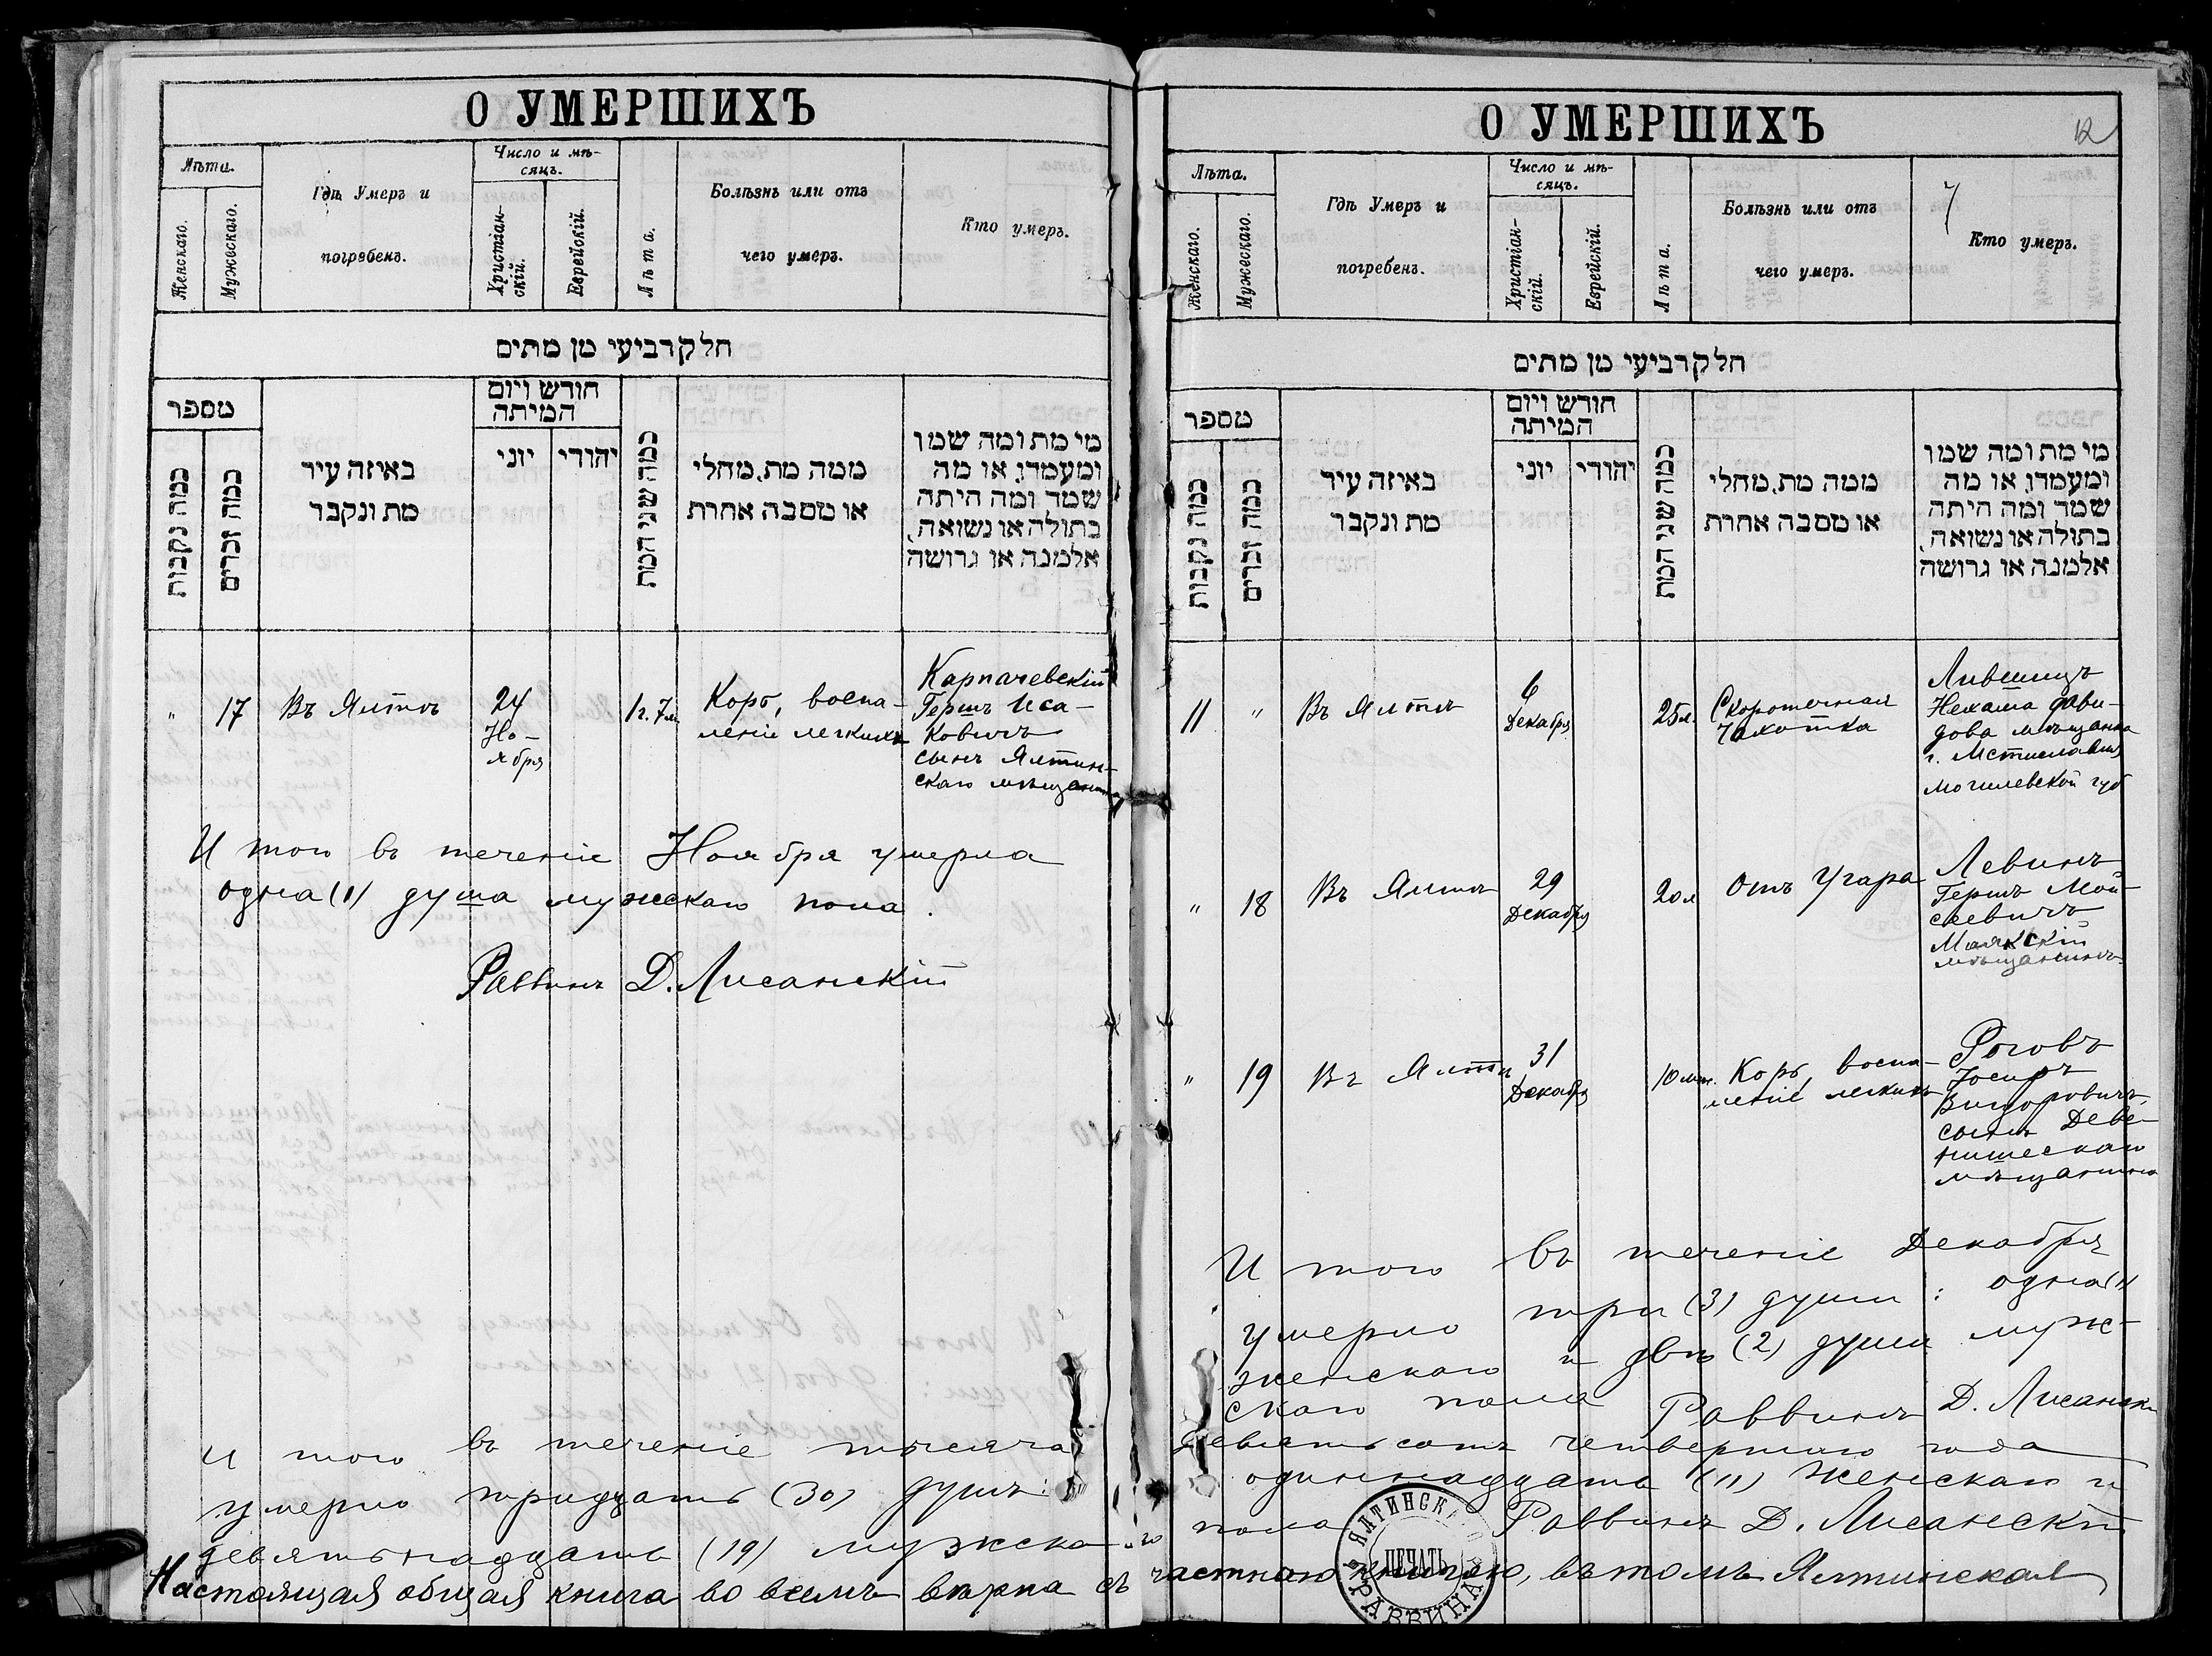 О УМЕРШИХЪ
Лѣта.
Женскаго.
Мужескаго.
Гдѣ Умеръ и
погребенъ.
Число и мѣ-
сяцъ.
Христіан-
скій.
Еврейскій.
Лѣта.
Болѣзнь или отъ
чего умеръ.
Кто умеръ.
חלק רביעי מן מתים
מספר
כמה נקבות
כמה זכרים
באיזה עיר
מת ונקבר
חודש ויום
המיתה
יוני
יהודי
כמה שני המת
ממה מת, מחלי
או מסבה אחרת
מי מת ומה שמו
ומעמדו, או מה
שמד ומה היתה
בתולה או נשואה,
אלמנה או גרושה
" 17 Въ Ялтѣ
24
Но-
ября
1 г. 7 м.
Корь, воспа-
леніе легкихъ
Карпачевскій
Гершъ Иса-
ковичъ
сынъ Ялтин-
скаго мѣщанина
Итого въ теченіе Ноября умерла
одна (1) душа мужскаго пола.
Раввинъ Д. Лисанскій
Итого въ теченіе тысяча
умерло тридцать (30) душъ:
девятьнадцать (19) мужска-го
Настоящая общая книга во всемъ вѣрна съ
О УМЕРШИХЪ
12
Лѣта.
Женскаго.
Мужескаго.
Гдѣ Умеръ и
погребенъ.
Число и мѣ-
сяцъ.
Христіан-
скій.
Еврейскій.
Лѣта.
Болѣзнь или отъ
чего умеръ.
Кто умеръ.
חלק רביעי מן מתים
מספר
כמה נקבות
כמה זכרים
באיזה עיר
מת ונקבר
חודש ויום
המיתה
יוני
יהודי
כמה שני המת
ממה מת, מחלי
או מסבה אחרת
מי מת ומה שמו
ומעמדו, או מה
שמד ומה היתה
בתולה או נשואה,
אלמנה או גרושה
11 " Въ Ялтѣ
6
Декабря
25 л.
Скоротечная
Чахотка
Лившицъ
Нехама Дави-
дова мѣщанка
г. Мстиславля
Могилевской губ
" 18 Въ Ялтѣ
29
Декабря
20 л
Отъ Угара
Левинъ
Гершъ Мой-
сеевичъ
Маякскій
мѣщанинъ
" 19 Въ Ялтѣ
31
Декабря
10 мѣс.
Корь, воспа-
леніе легкихъ
Роговъ
Іосифъ
сынъ Деве-
нишескаго
мѣщанина
Итого въ теченіе Декабря
умерло три (3) души: одна (1)
женскаго и двѣ (2) души муж-
скаго пола Раввинъ Д. Лисанскі
девятьсотъ четвертаго года
одиннадцать (11) женскаго и
пола Раввинъ Д. Лисанскій
частною книгою, въ томъ Ялтинская
ЯЛТИНСК
ПЕЧАТЬ
РАВВИНА